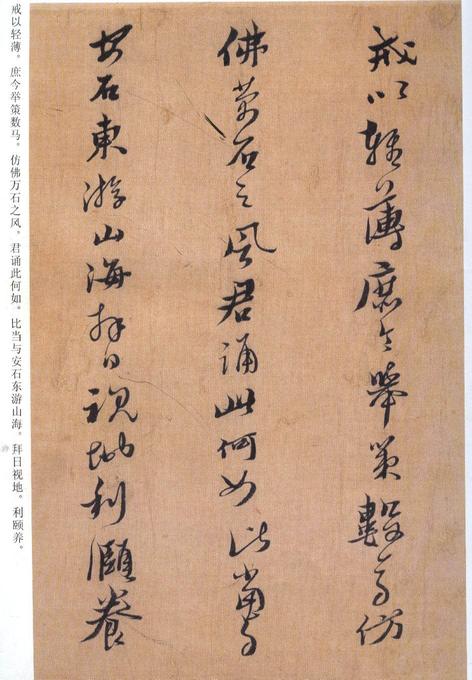 戒以輕薄庶令舉策數馬仿
佛萬石之風君誦此何如比當與
安石東游山海拜日視地利頤養
戒以轻薄。庶今举策数马。仿佛万石之风。君诵此何如。比当与安石东游山海。拜日视地。利颐养。